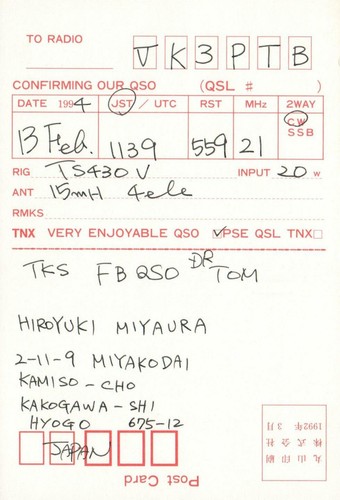 TO RADIO VK3PTB
CONFIRMING OUR QSO (QSL # )
DATE 1994 JST / UTC RST MHz 2WAY
13 Feb. 1139 559 21 CW
SSB
RIG TS430V INPUT 20 W
ANT 15mH 4ele
RMKS
TNX VERY ENJOYABLE QSO ☑PSE QSL TNX☐
TKS FB QSO DR TOM
HIROYUKI MIYAURA
2-11-9 MIYAKODAI
KAMISO-CHO
KAKOGAWA-SHI
HYOGO 675-12
JAPAN
Post Card
丸山印刷
株式会社
1992年3月